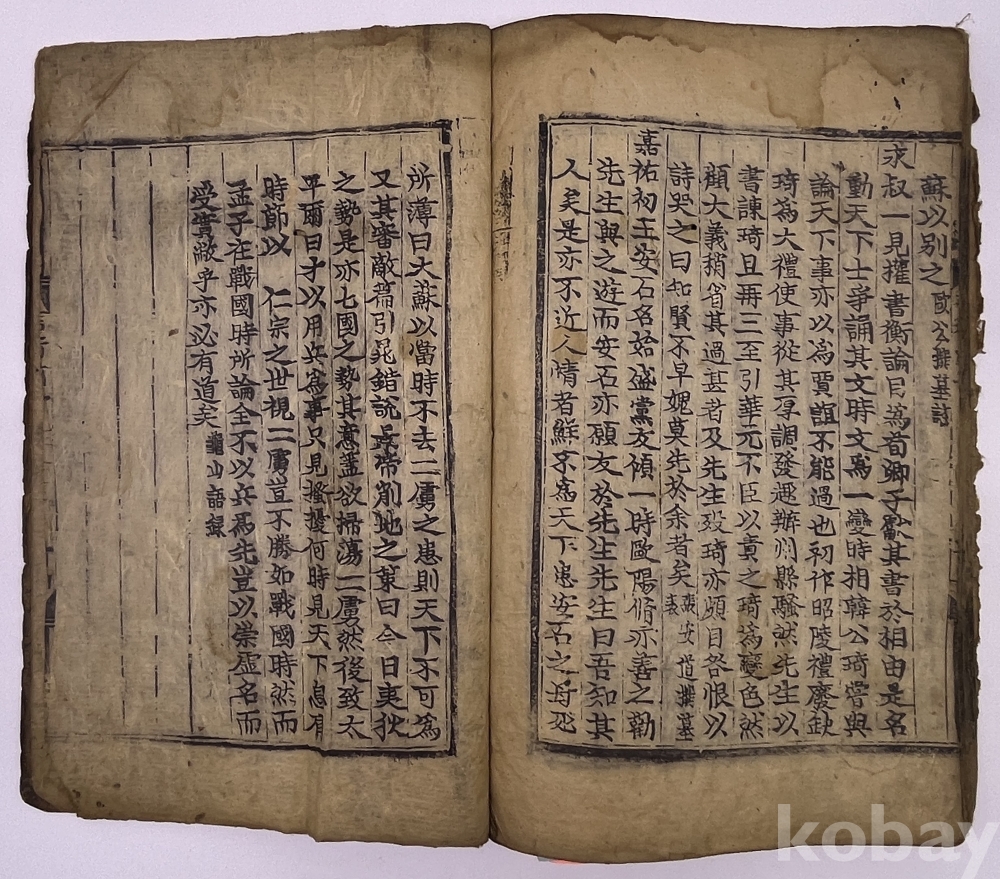 蘇以別之 歐公撰墓誌
永叔一見擢書衡論目爲荀卿子獻其書於相由是名
動天下士爭誦其文時文爲一變時相韓公琦嘗與
論天下事亦以爲賈誼不能過也初作昭陵禮廢缺
琦爲大禮使事從其厚調發趣辦州縣騷然先生以
書諫琦且再三至引華元不臣以責之琦爲變色然
顧大義稍省其過甚者及先生歿琦亦頗自咎恨以
詩哭之曰知賢不早媿莫先於余者矣 張安道撰墓表
嘉祐初王安石名始盛黨友傾一時歐陽脩亦善之勸
先生與之遊而安石亦願友於先生先生曰吾知其
人矣是亦不近人情者鮮不爲天下患安石之母死
所薄曰大蘇以當時不去二虜之患則天下不可爲
又其審敵篇引晁錯說景帝削地之策曰今日夷狄
之勢是亦七國之勢其意蓋欲掃蕩二虜然後致太
平爾曰才以用兵爲事只見搔擾何時見天下息有
時節以 仁宗之世視二虜豈不勝如戰國時然而
孟子在戰國時所論全不以兵爲先豈以崇虛名而
受實敝乎亦必有道矣 龜山語錄
kobay